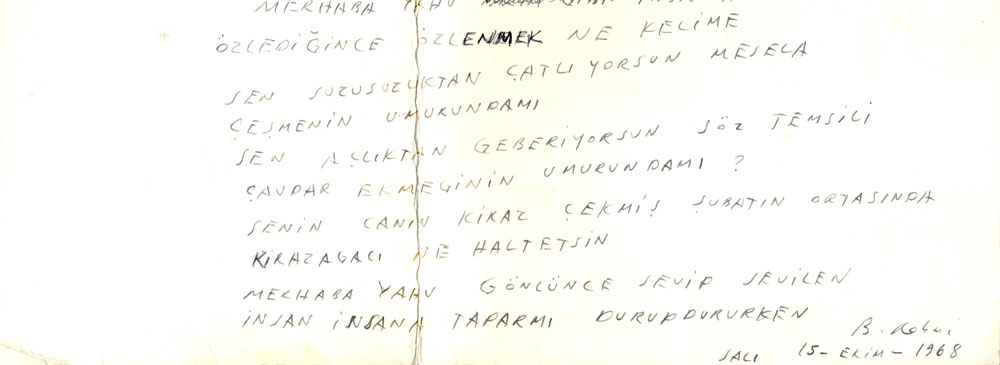 MERHABA YAHU
ÖZLEDİĞİNCE ÖZLENMEK NE KELİME
SEN SUZUSUZLUKTAN ÇATLIYORSUN MESELA
ÇEŞMENİN UMURUNDAMI
SEN AÇLIKTAN GEBERİYORSUN SÖZ TEMSİLİ
ÇAVDAR EKMEĞİNİN UMURUNDAMI ?
SENİN CANIN KİRAZ ÇEKMİŞ ŞUBATIN ORTASINDA
KİRAZAGACI NE HALTETSİN
MERHABA YAHU GÖNLÜNCE SEVİP SEVİLEN
İNSAN İNSANA TAPARMI DURUPDURURKEN
B.
SALI 15-EKİM-1968